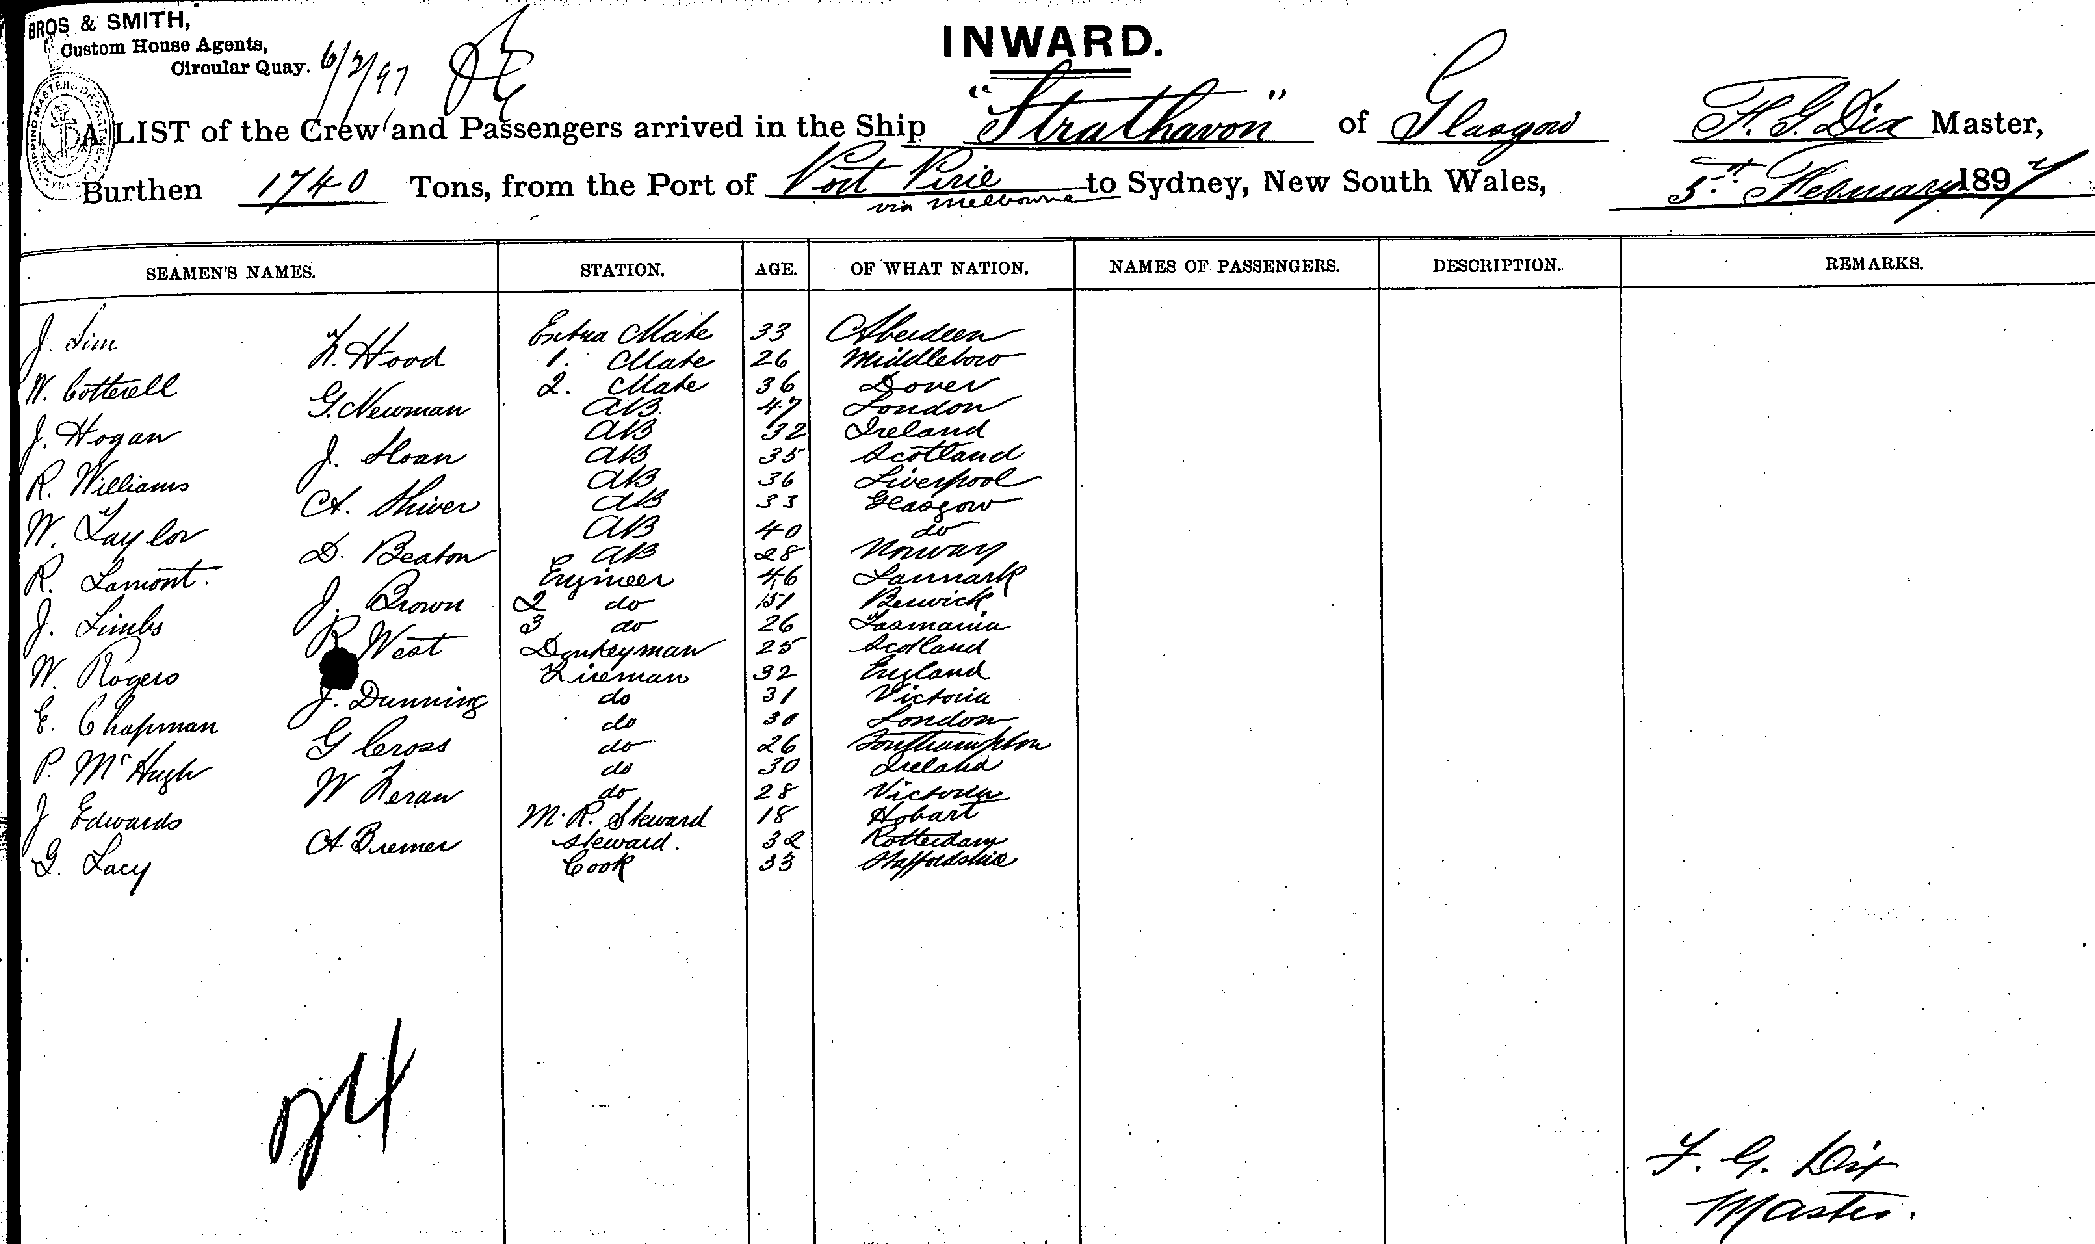 BROS & SMITH,
Custom House Agents,
Circular Quay.
6/2/97
INWARD.
A LIST of the Crew and Passengers arrived in the Ship "Strathavon" of Glasgow F. G. Dix Master,
Burthen 1740 Tons, from the Port of Port Pirie to Sydney, New South Wales, 5th February 1897
via Melbourne
SEAMEN'S NAMES. STATION. AGE. OF WHAT NATION. NAMES OF PASSENGERS. DESCRIPTION. REMARKS.
J. Sim Extra Mate 33 Aberdeen
F. Hood 1. Mate 26 Middlebro
W. Cotterell 2. Mate 36 Dover
G. Newman AB 47 London
J. Hogan AB 32 Ireland
J. Sloan AB 35 Scotland
R. Williams AB 36 Liverpool
A. Shiver AB 33 Glasgow
W. Taylor AB 40 do
D. Beaton AB 28 Norway
R. Lamont. Engineer 46 Lannark
J. Brown 2 do 51 Berwick
J. Limbs 3 do 26 Tasmania
R West Donkeyman 25 Scotland
W. Rogers Fireman 32 England
J. Dunning do 31 Victoria
E. Chapman do 30 London
G Cross do 26 Southampton
P. McHugh do 30 Ireland
W Feran do 28 Victoria
J Edwards M. R. Steward 18 Hobart
A Bremer Steward. 32 Rotterdam
G. Lacy Cook 33 Staffordshire
24
F. G. Dix
Master.